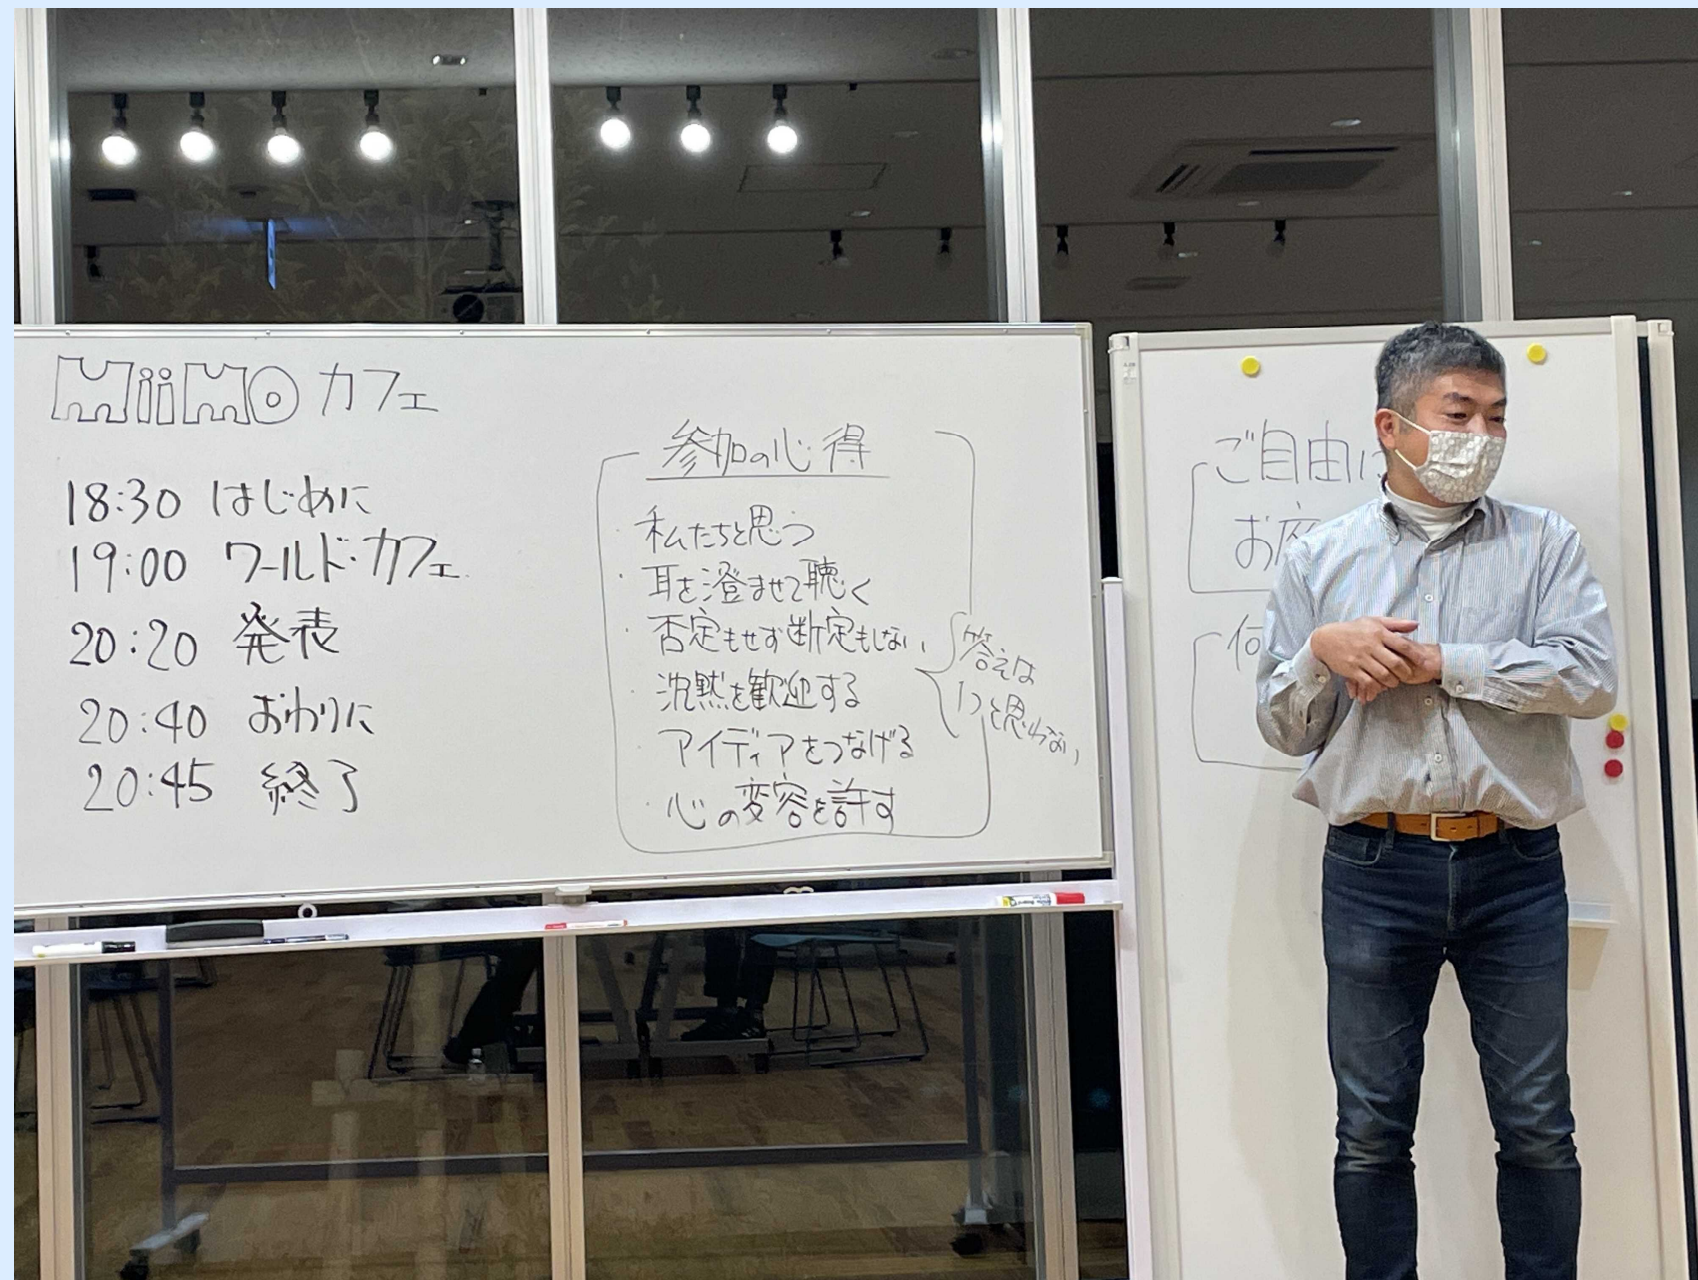 MiiMo カフェ
18:30 はじめに
19:00 ワールド・カフェ
20:20 発表
20:40 おわりに
20:45 終了
参加の心得
・私たちと思う
・耳を澄ませて聴く
・否定もせず断定もしない
・沈黙を歓迎する
・アイディアをつなげる
・心の変容を許す
答えは
1つと思わない
ご自由に
お座
何